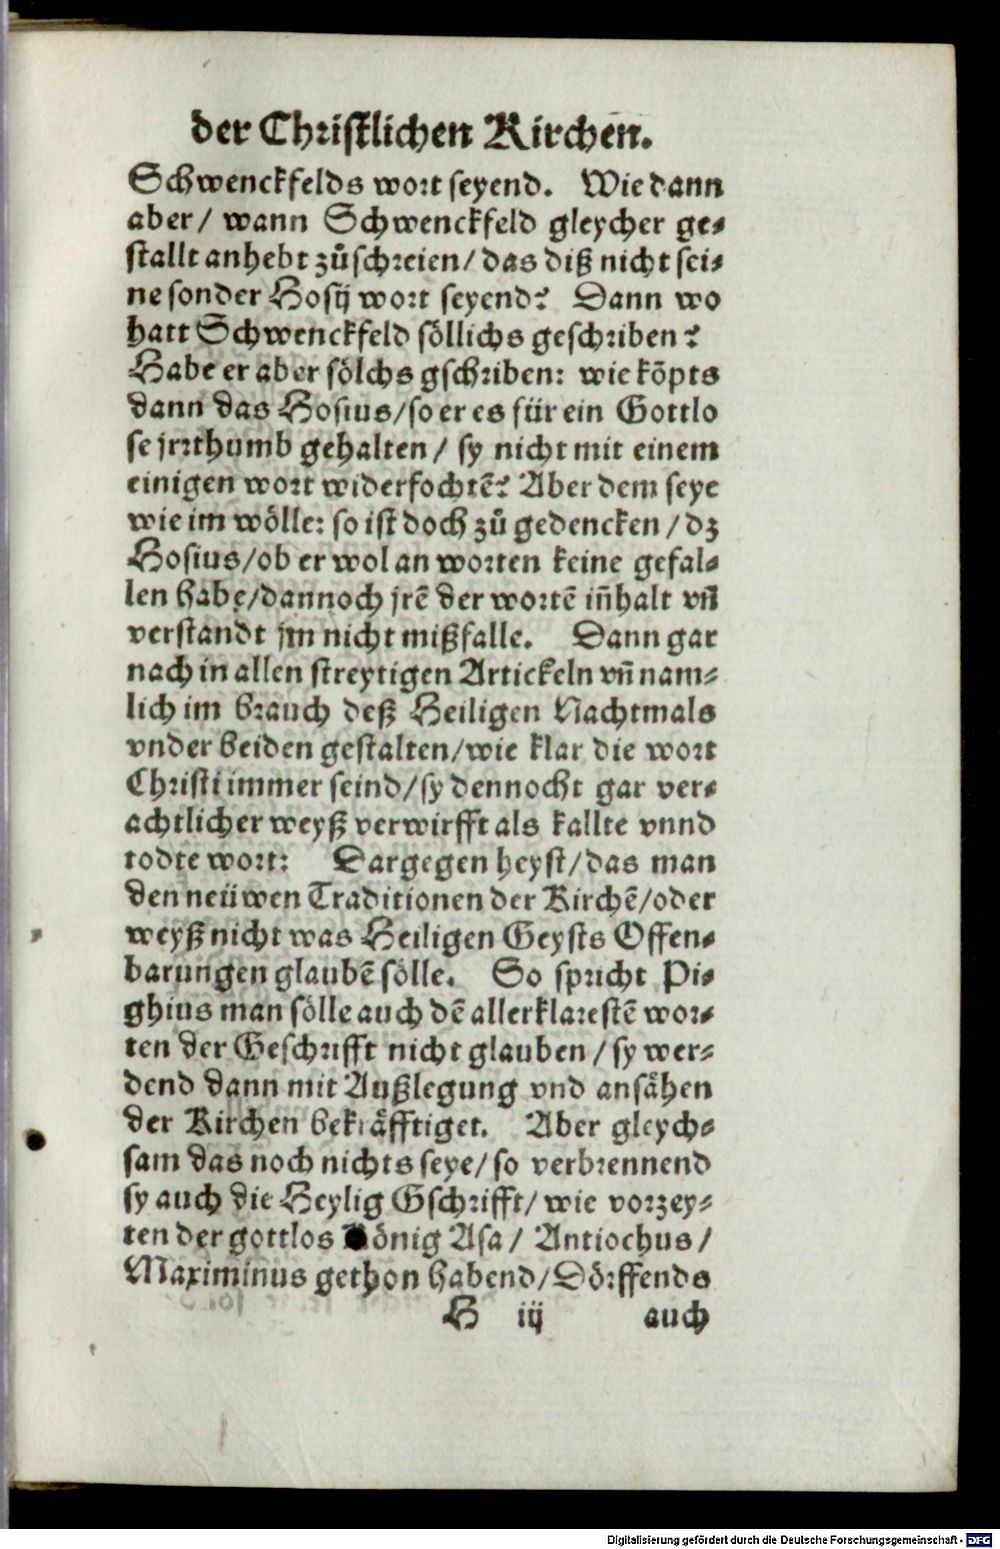 der Christlichen Kirchen.
Schwenckfelds wort seyend. Wie dann
aber/ wann Schwenckfeld gleycher ge-
stallt anhebt zůschreien/ das diß nicht sei-
ne sonder Hosij wort seyend? Dann wo
hatt Schwenckfeld söllichs geschriben?
Habe er aber sölchs gschriben: wie kõpts
dann das Hosius/ so er es für ein Gottlo
se jrrthumb gehalten/ sy nicht mit einem
einigen wort widerfochtẽ? Aber dem seye
wie im wölle: so ist doch zů gedencken/ dz
Hosius/ ob er wol an worten keine gefal-
len habe/ dannoch jrẽ der wortẽ iñhalt vñ
verstandt jm nicht mißfalle. Dann gar
nach in allen streytigen Artickeln vñ nam-
lich im brauch deß Heiligen Nachtmals
vnder beiden gestalten/ wie klar die wort
Christi immer seind/ sy dennocht gar ver-
achtlicher weyß verwirfft als kallte vnnd
todte wort: Dargegen heyst/ das man
den neüwen Traditionen der Kirchẽ/ oder
weyß nicht was Heiligen Geysts Offen-
barungen glaubẽ sölle. So spricht Pi-
ghius man sölle auch dẽ allerklarestẽ wor-
ten der Geschrifft nicht glauben/ sy wer-
dend dann mit Außlegung vnd ansähen
der Kirchen bekräfftiget. Aber gleych-
sam das noch nichts seye/ so verbrennend
sy auch die Heylig Gschrifft/ wie vorzey-
ten der gottlos König Asa/ Antiochus/
Maximinus gethon habend/ Dörffends
H iij auch
Digitalisierung gefördert durch die Deutsche Forschungsgemeinschaft - DFG